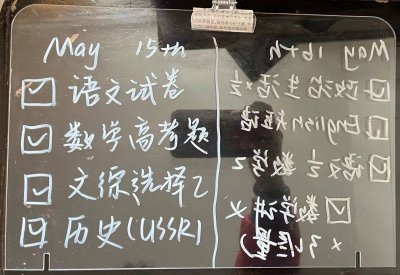 May 15th
语文试卷
数学高考题
文综选择2
历史(USSR)
May 16th
政治生活
English
语文 数学
数学讲义